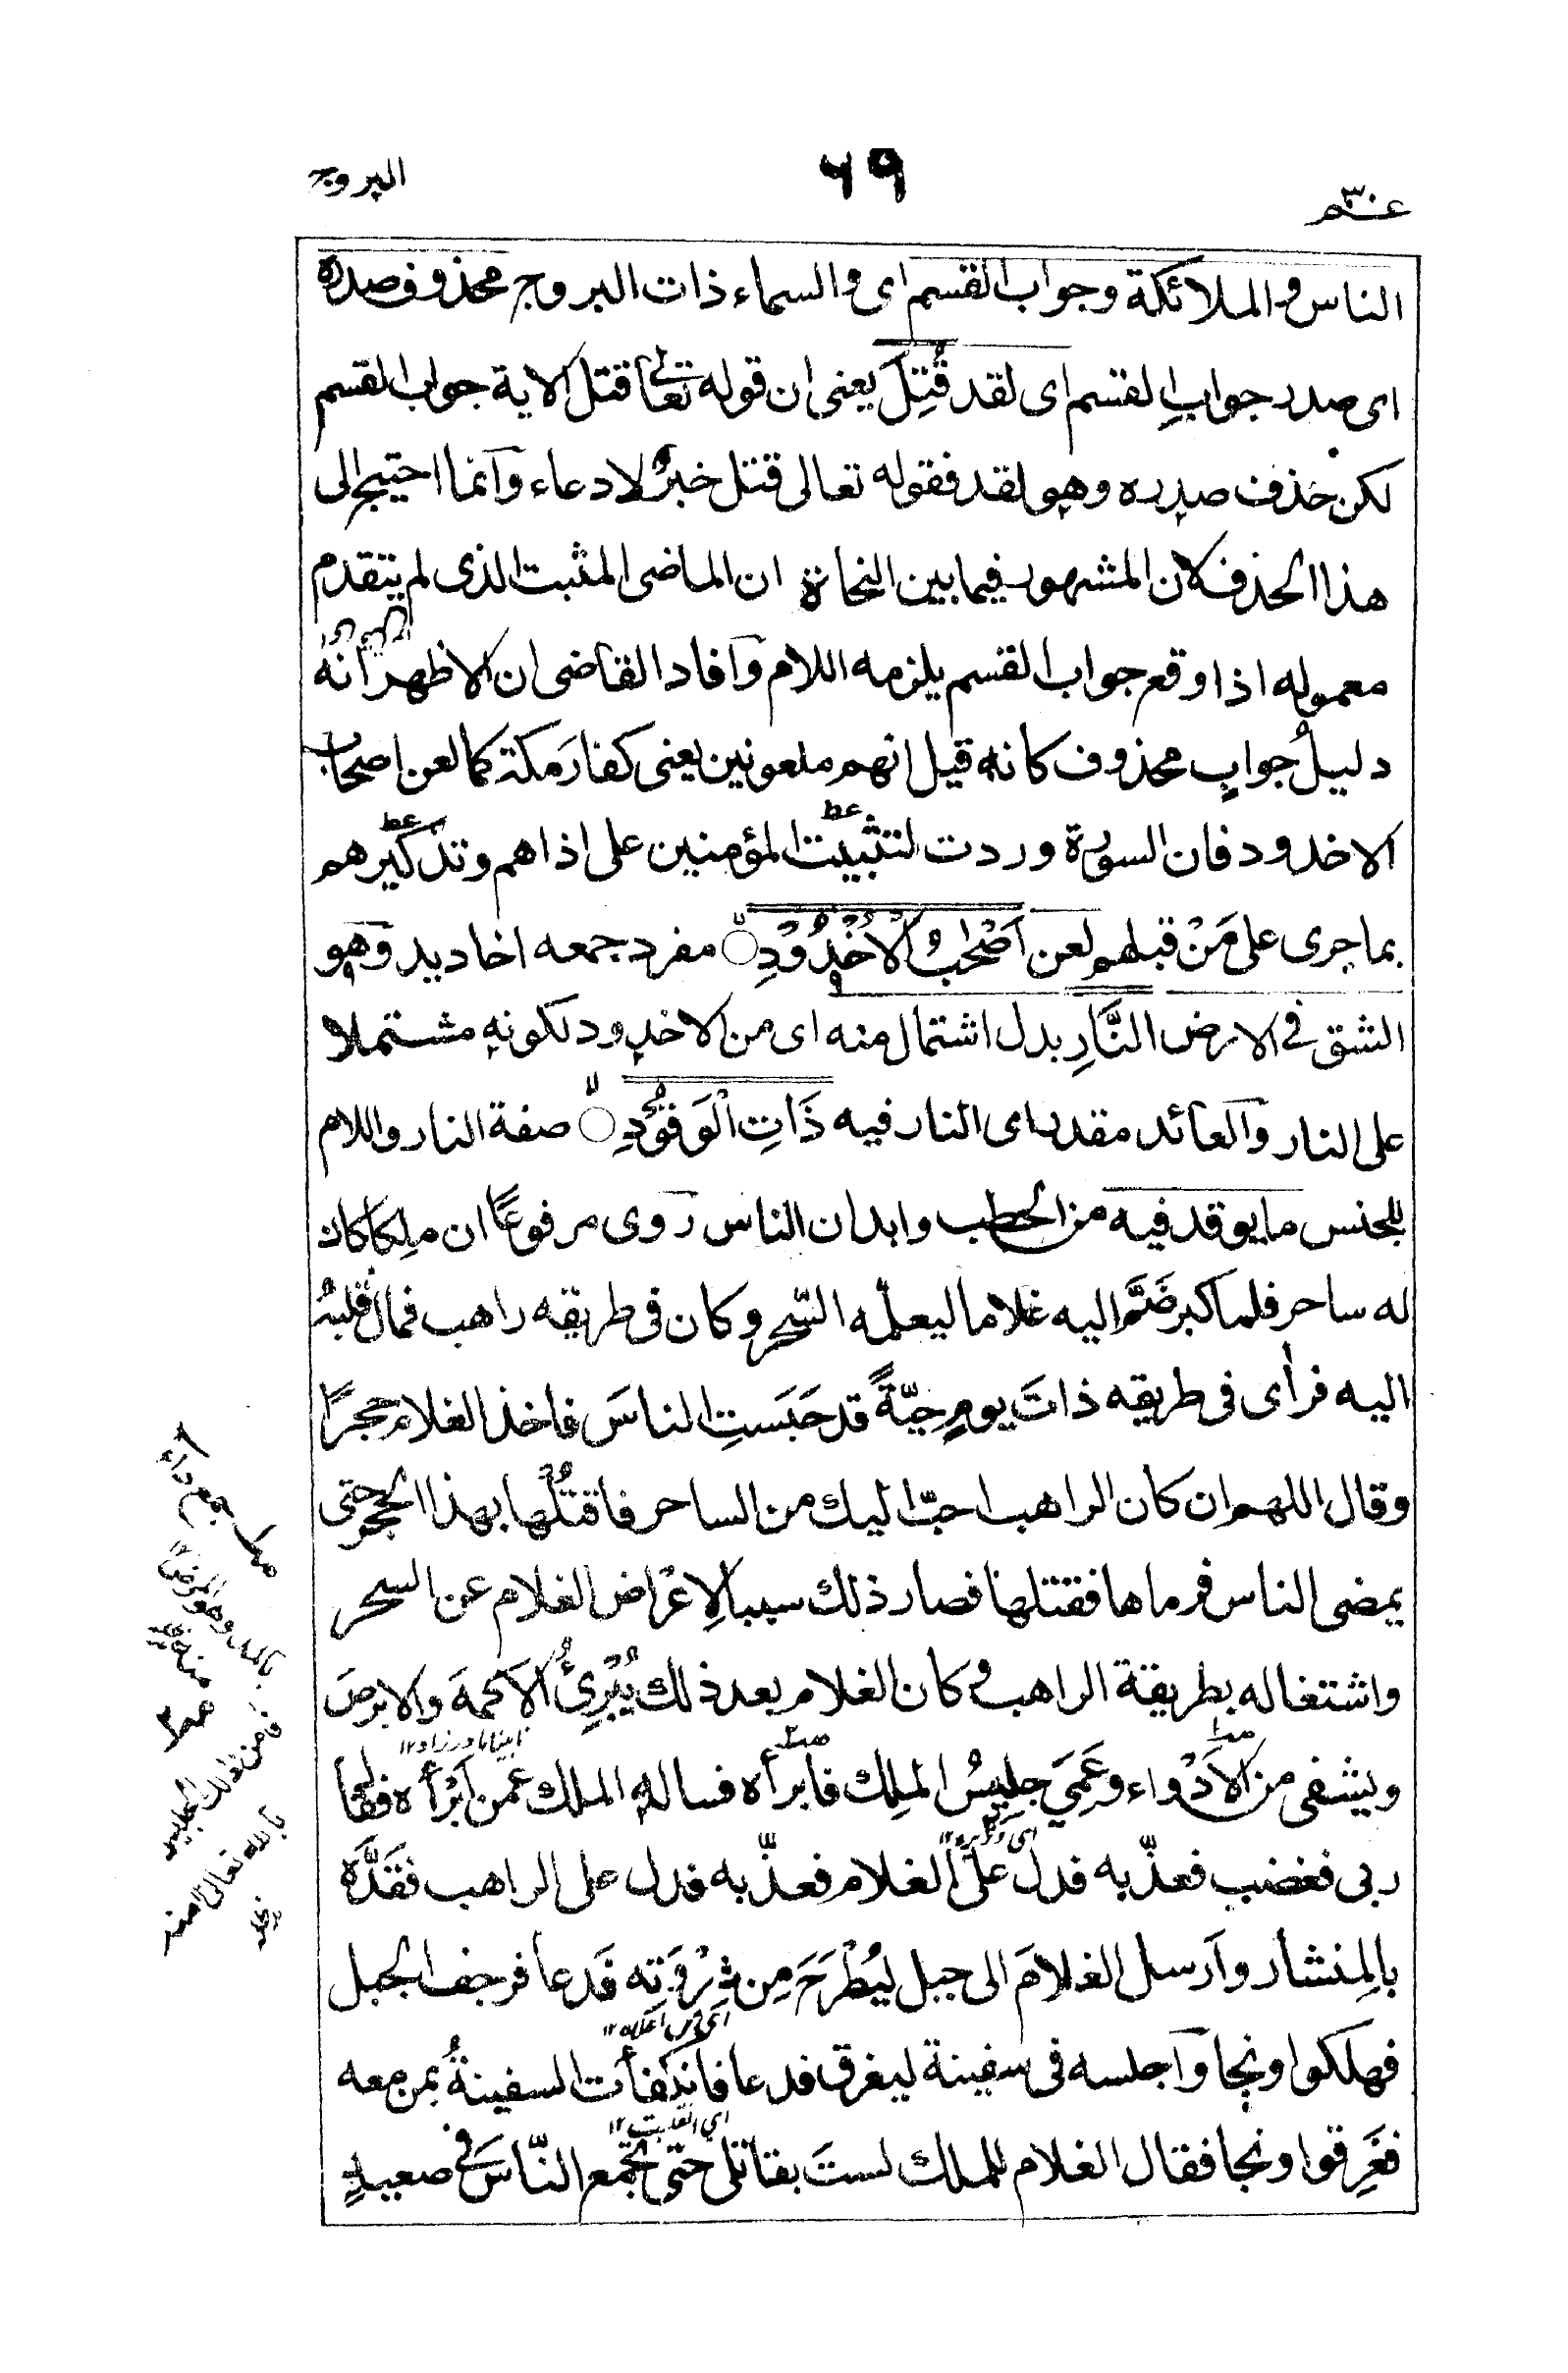 عم ٣٠
٦٩
البروج
الناس والملائكة وجواب القسم اى والسماء ذات البروج محذوف صدره
اى صدر جوابِ القسم اى لقد قُتِلَ يعنى ان قوله تعالى قتل الاية جواب القسم
لكن حذف صدره وهو لقد فقوله تعالى قتل خبرٌ لا دعاء وانما احتيج الى
هذا الحذف لان المشهور فيما بين النحاة ان الماضى المثبت الذى لم يتقدم
معموله اذا وقع جواب القسم يلزمه اللام وافاد القاضى ان الاظهر انه
دليلُ جوابٍ محذوف كانه قيل انهم ملعونين يعنى كفار مكة كما لعن اصحاب
الاخدود فان السورة وردت لتثبيت المؤمنين على اذاهم وتذكيرهم
بما جرى على مَنْ قبلهم لعن اَصْحٰبُ الْاُخْدُوْدِ ۙ مفرد جمعه اخاديد وهو
الشق فى الارض النَّارِ بدل اشتمال منه اى من الاخدود لكونه مشتملا
على النار والعائد مقدر اى النار فيه ذَاتِ الْوَقُوْدِ ۙ صفة النار واللام
للجنس ما يوقد فيه من الحطب وابدان الناس روى مرفوعًا ان ملِكا كان
له ساحر فلما كبر ضَمَّ اليه غلاما ليعلّمه السّحر وكان فى طريقه راهب فمال قلبُه
اليه فرأى فى طريقه ذاتَ يومٍ حيّةً قد حَبَستِ الناسَ فاخذ الغلام حجرًا
وقال اللهم ان كان الراهب احبّ اليك من الساحر فاقتُلْها بهذا الحجر حتى
يمضى الناس فرماها فقتلها فصار ذلك سببا لِاِعْراض الغلام عن السحر
واشتغاله بطريقة الراهب وكان الغلام بعد ذلك يُبْرِئُ الاَكْمَهَ والابرصَ
ويشفى من الاَدْواء وعَمِيَ جليسُ الملِك فابرأه فساله الملك عمن اَبْرَأه فقال
ربى فغضب فعذّبه فدل على الغلام فعذّبه فدل على الراهب فقَدَّه
بالمِنشار وارسل الغلامَ الى جبل ليُطْرَحَ مِن ذِرْوَتِه فَدعا فرجف الجبل
فهلكوا ونجا واجلسه فى سفينة ليغرق فدعا فانكفأت السفينةُ بمن معه
فغَرِقوا ونجا فقال الغلام للملك لستَ بقاتلى حتّى تجمع النّاسَ فى صعيدٍ
اى من اعلاه ١٢
اى انقلبت ١٢